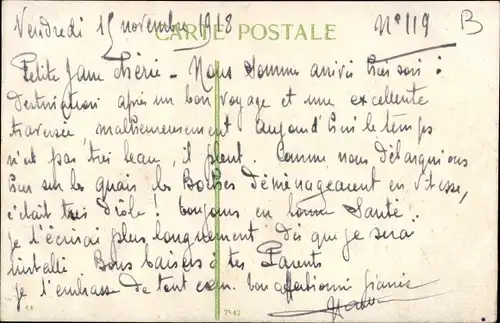 Vendredi 15 novembre 1918
CARTE POSTALE
N° 119
B
Petite Jane Chérie - Nous somme arrivés hier soir à
destination après un bon voyage et une excellente
traversée, malheureusement aujourd'hui le temps
n'est pas très beau, il pleut. Comme nous débarquions
hier sur les quais les Boches déménageaient en vitesse,
c'était très drôle! Toujours en bonne santé.
je t'écrirai plus longuement dès que je serai
installé Bons baisers à tes Parents
je t'embrasse de tout cœur. ton affectionné fiancé